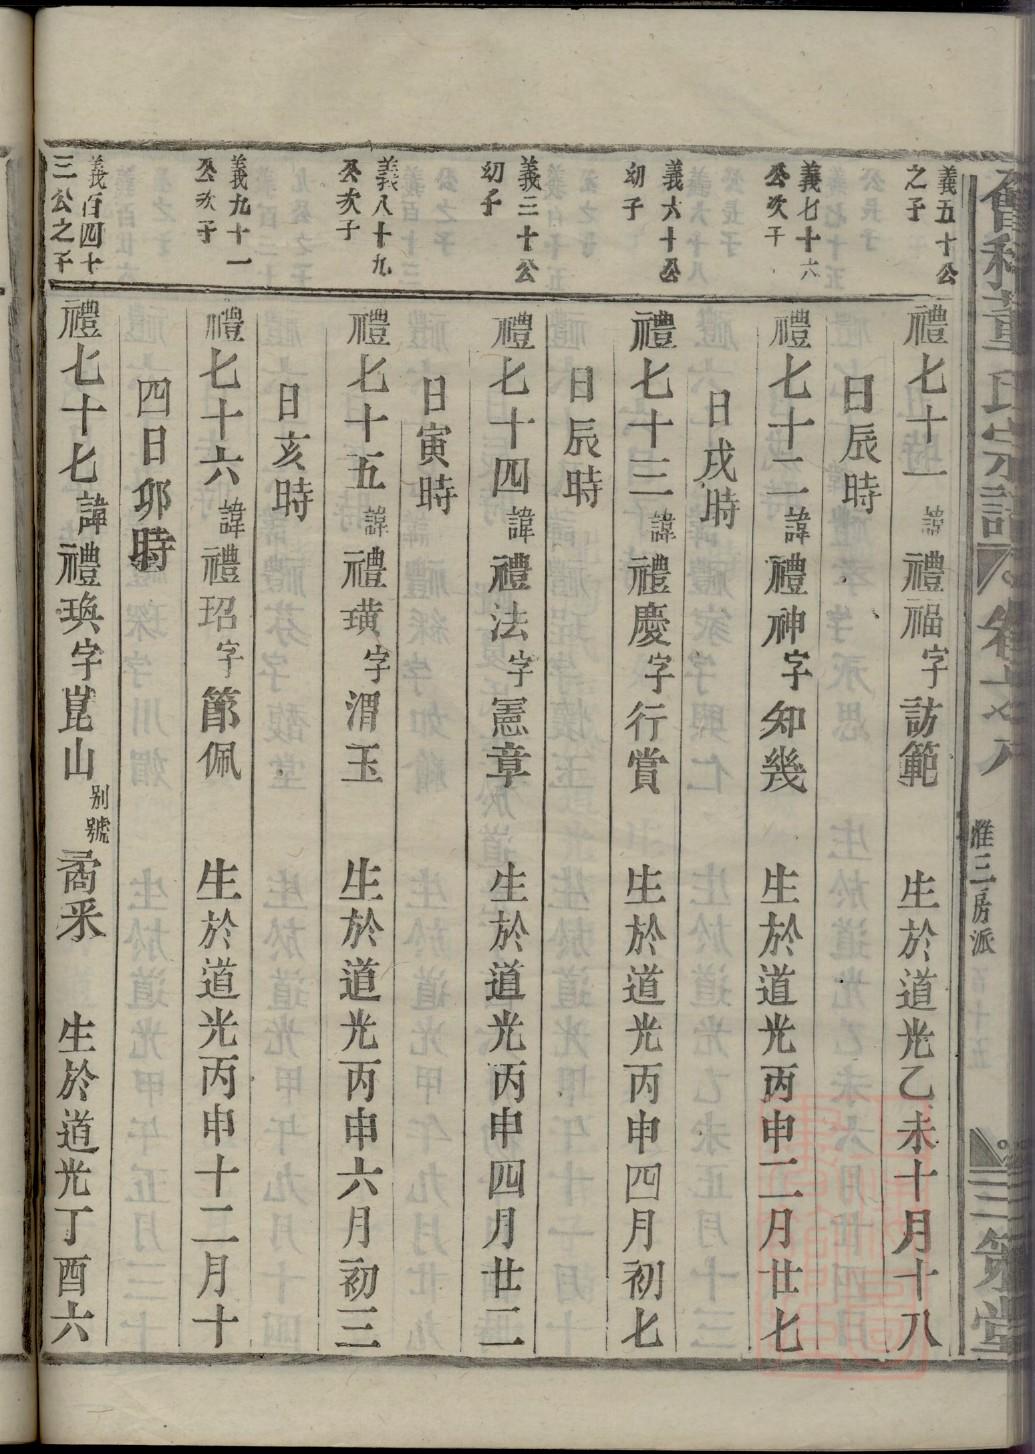 董氏宗譜 卷之八
雅三房派 百十五
三策堂
義五十公之子
禮七十一諱禮福字訪範 生於道光乙未十月十八
日辰時
義七十六公次子
禮七十二諱禮神字知幾 生於道光丙申二月廿七
日戌時
義六十公幼子
禮七十三諱禮慶字行賞 生於道光丙申四月初七
日辰時
義三十公幼子
禮七十四諱禮法字憲章 生於道光丙申四月廿二
日寅時
義八十九公次子
禮七十五諱禮璜字渭玉 生於道光丙申六月初三
日亥時
義九十一公次子
禮七十六諱禮玿字節佩 生於道光丙申十二月十
四日卯時
義百四十三公之子
禮七十七諱禮瑍字崑山別號矞采 生於道光丁酉六